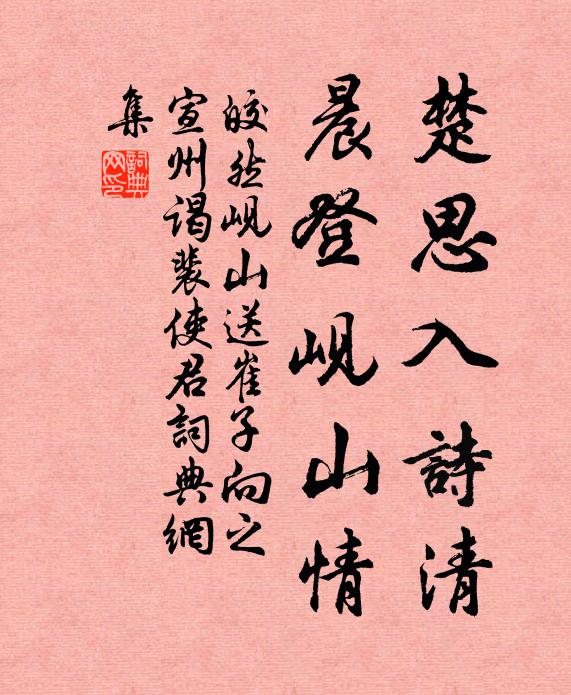 楚思入詩清
晨登峴山情
皎然峴山送崔子向之
宣州謁裴使君詞典網
集
詞典
网印